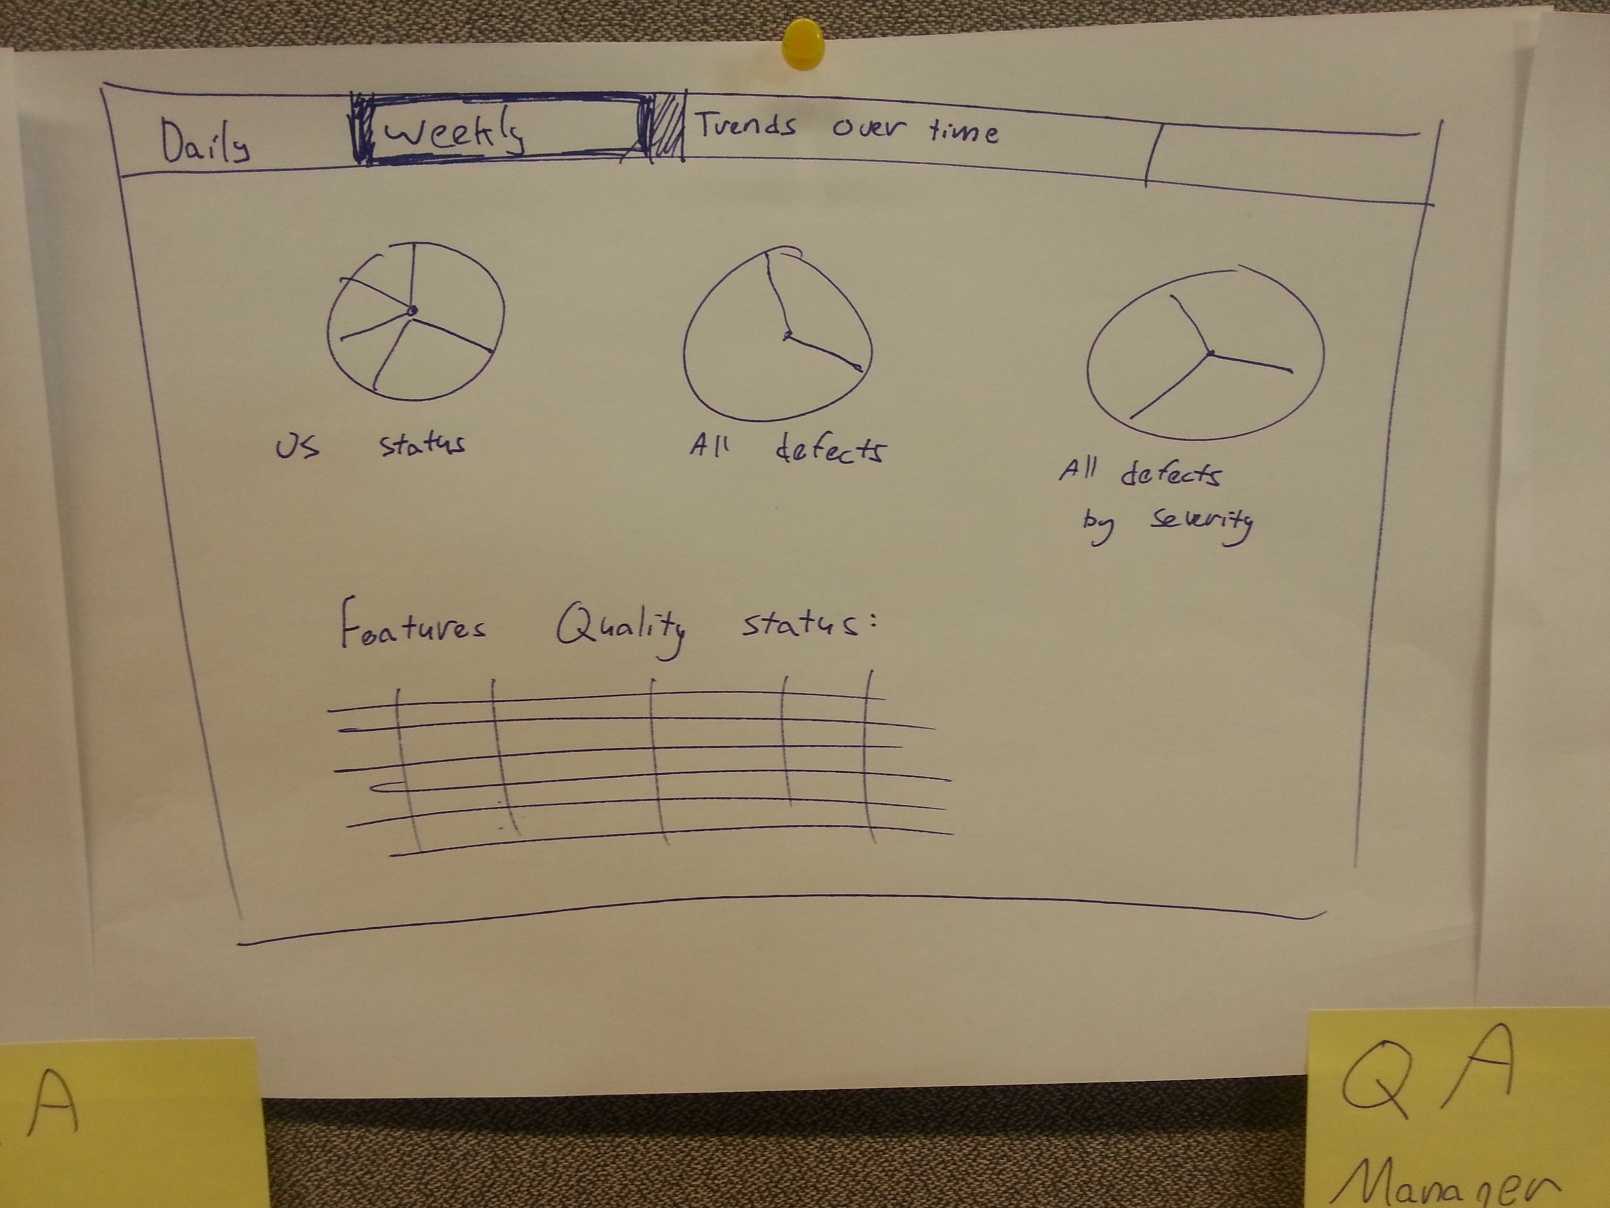 Daily
Weekly
Trends over time
US status
All defects
All defects
by severity
Features Quality status:
A
QA
Manager